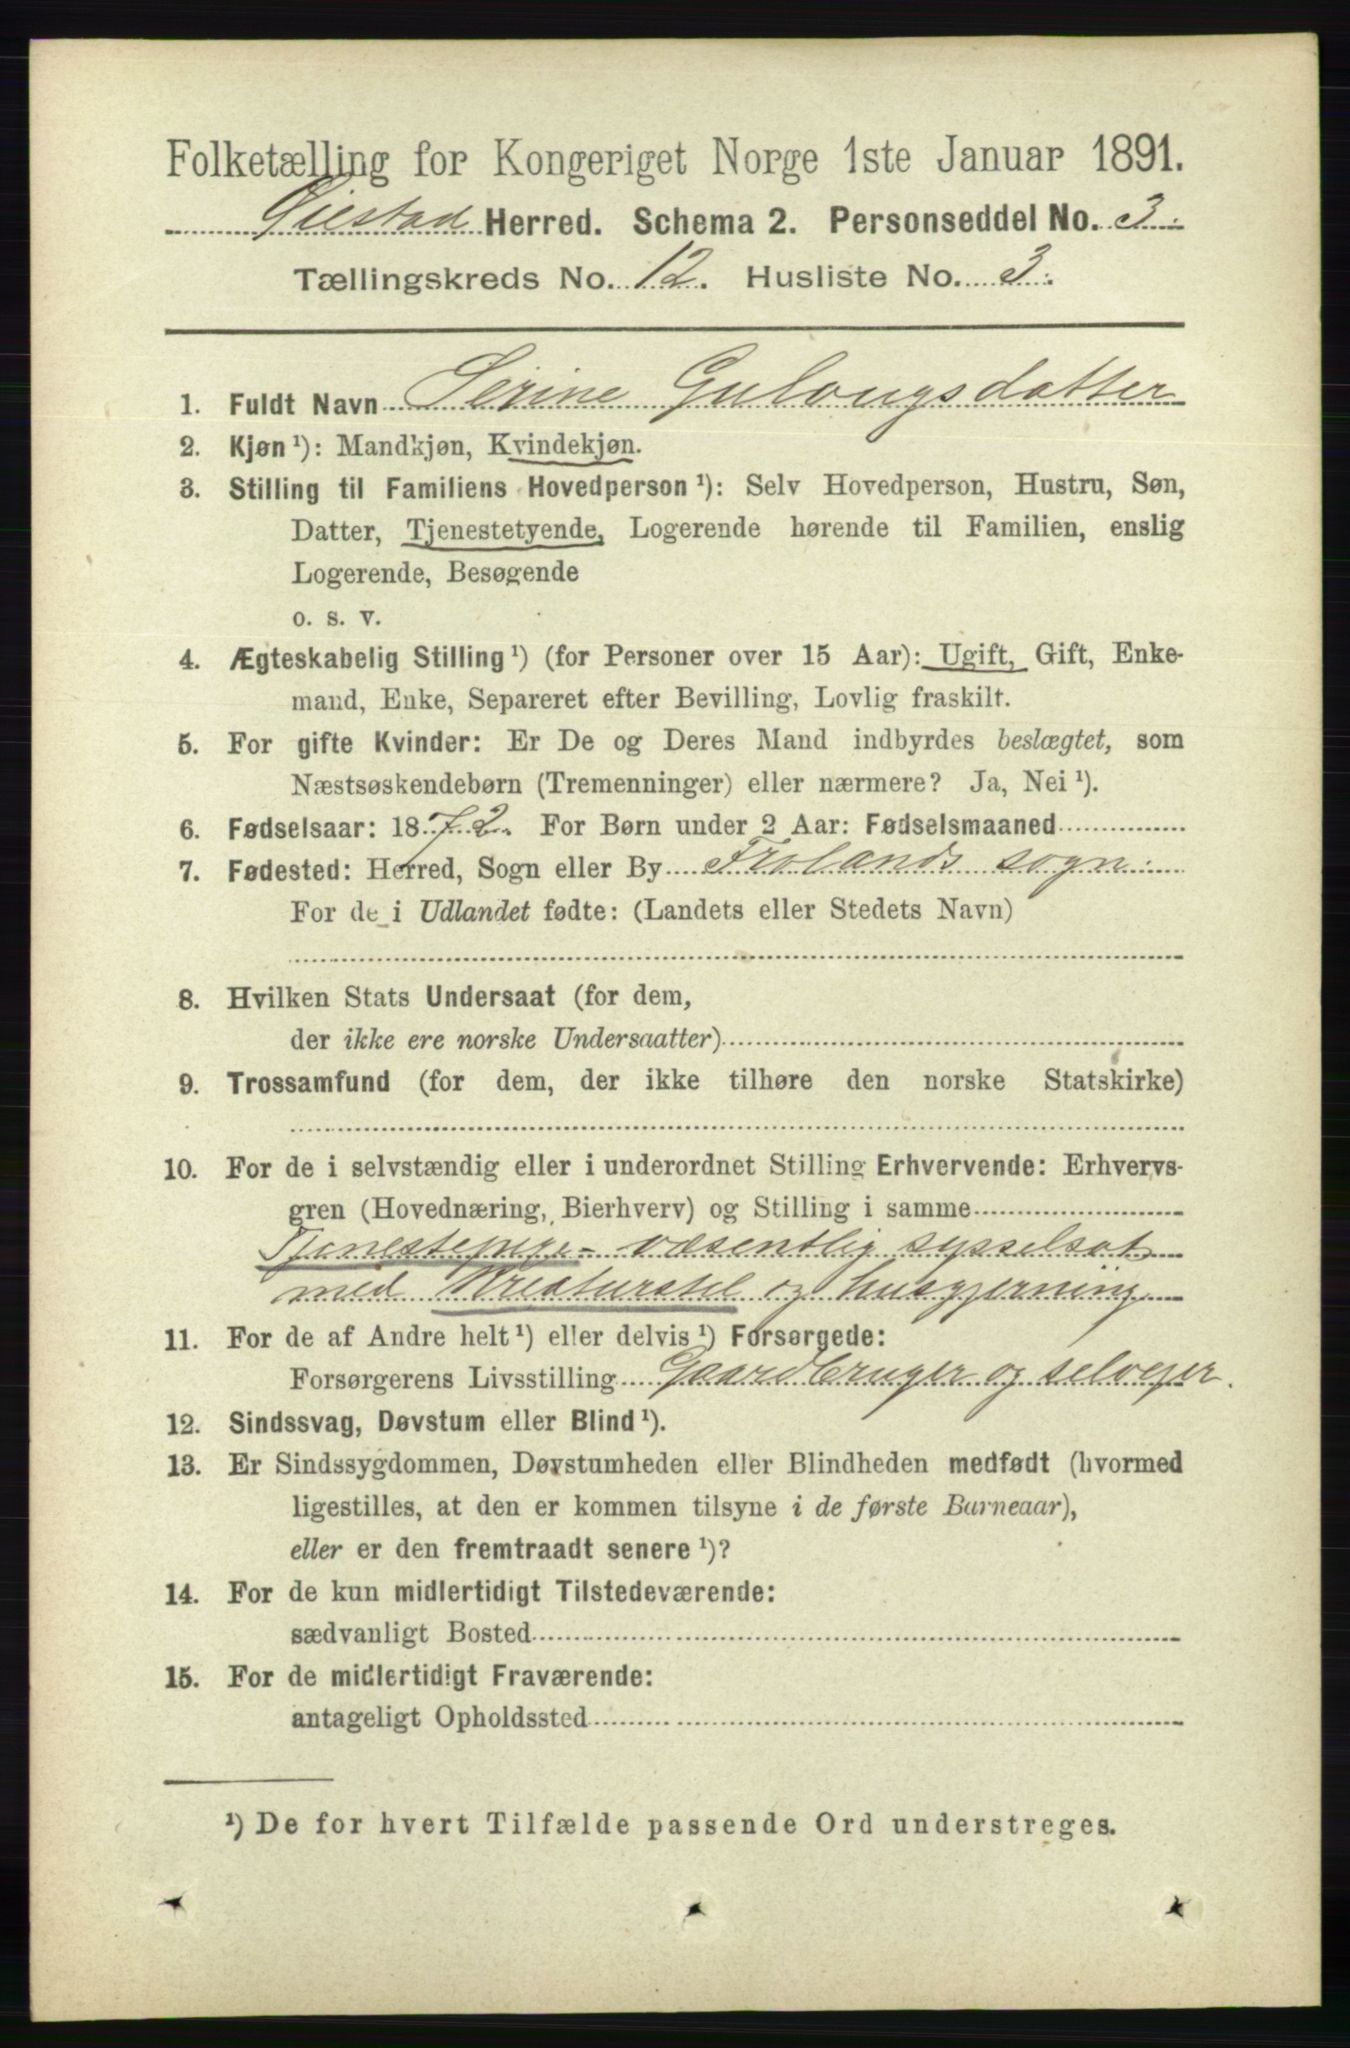 Folketælling for Kongeriget Norge 1ste Januar 1891.
Øiestad Herred. Schema 2. Personseddel No. 3.
Tællingskreds No. 12. Husliste No. 3.
1. Fuldt Navn Serine Gulougsdatter
2. Kjøn ¹): Mandkjøn, Kvindekjøn.
3. Stilling til Familiens Hovedperson ¹): Selv Hovedperson, Hustru, Søn,
Datter, Tjenestetyende, Logerende hørende til Familien, enslig
Logerende, Besøgende
o. s. v.
4. Ægteskabelig Stilling ¹) (for Personer over 15 Aar): Ugift, Gift, Enke-
mand, Enke, Separeret efter Bevilling, Lovlig fraskilt.
5. For gifte Kvinder: Er De og Deres Mand indbyrdes beslægtet, som
Næstsøskendebørn (Tremenninger) eller nærmere? Ja, Nei ¹).
6. Fødselsaar: 1872. For Børn under 2 Aar: Fødselsmaaned
7. Fødested: Herred, Sogn eller By Frolands sogn.
For de i Udlandet fødte: (Landets eller Stedets Navn)
8. Hvilken Stats Undersaat (for dem,
der ikke ere norske Undersaatter)
9. Trossamfund (for dem, der ikke tilhøre den norske Statskirke)
10. For de i selvstændig eller i underordnet Stilling Erhvervende: Erhvervs-
gren (Hovednæring, Bierhverv) og Stilling i samme
Tjenestepige - væsentlig sysselsat
med Kreaturstel og husgjerning
11. For de af Andre helt ¹) eller delvis ¹) Forsørgede:
Forsørgerens Livsstilling Gaardbruger og selvejer.
12. Sindssvag, Døvstum eller Blind ¹).
13. Er Sindssygdommen, Døvstumheden eller Blindheden medfødt (hvormed
ligestilles, at den er kommen tilsyne i de første Barneaar),
eller er den fremtraadt senere ¹)?
14. For de kun midlertidigt Tilstedeværende:
sædvanligt Bosted
15. For de midlertidigt Fraværende:
antageligt Opholdssted
¹) De for hvert Tilfælde passende Ord understreges.